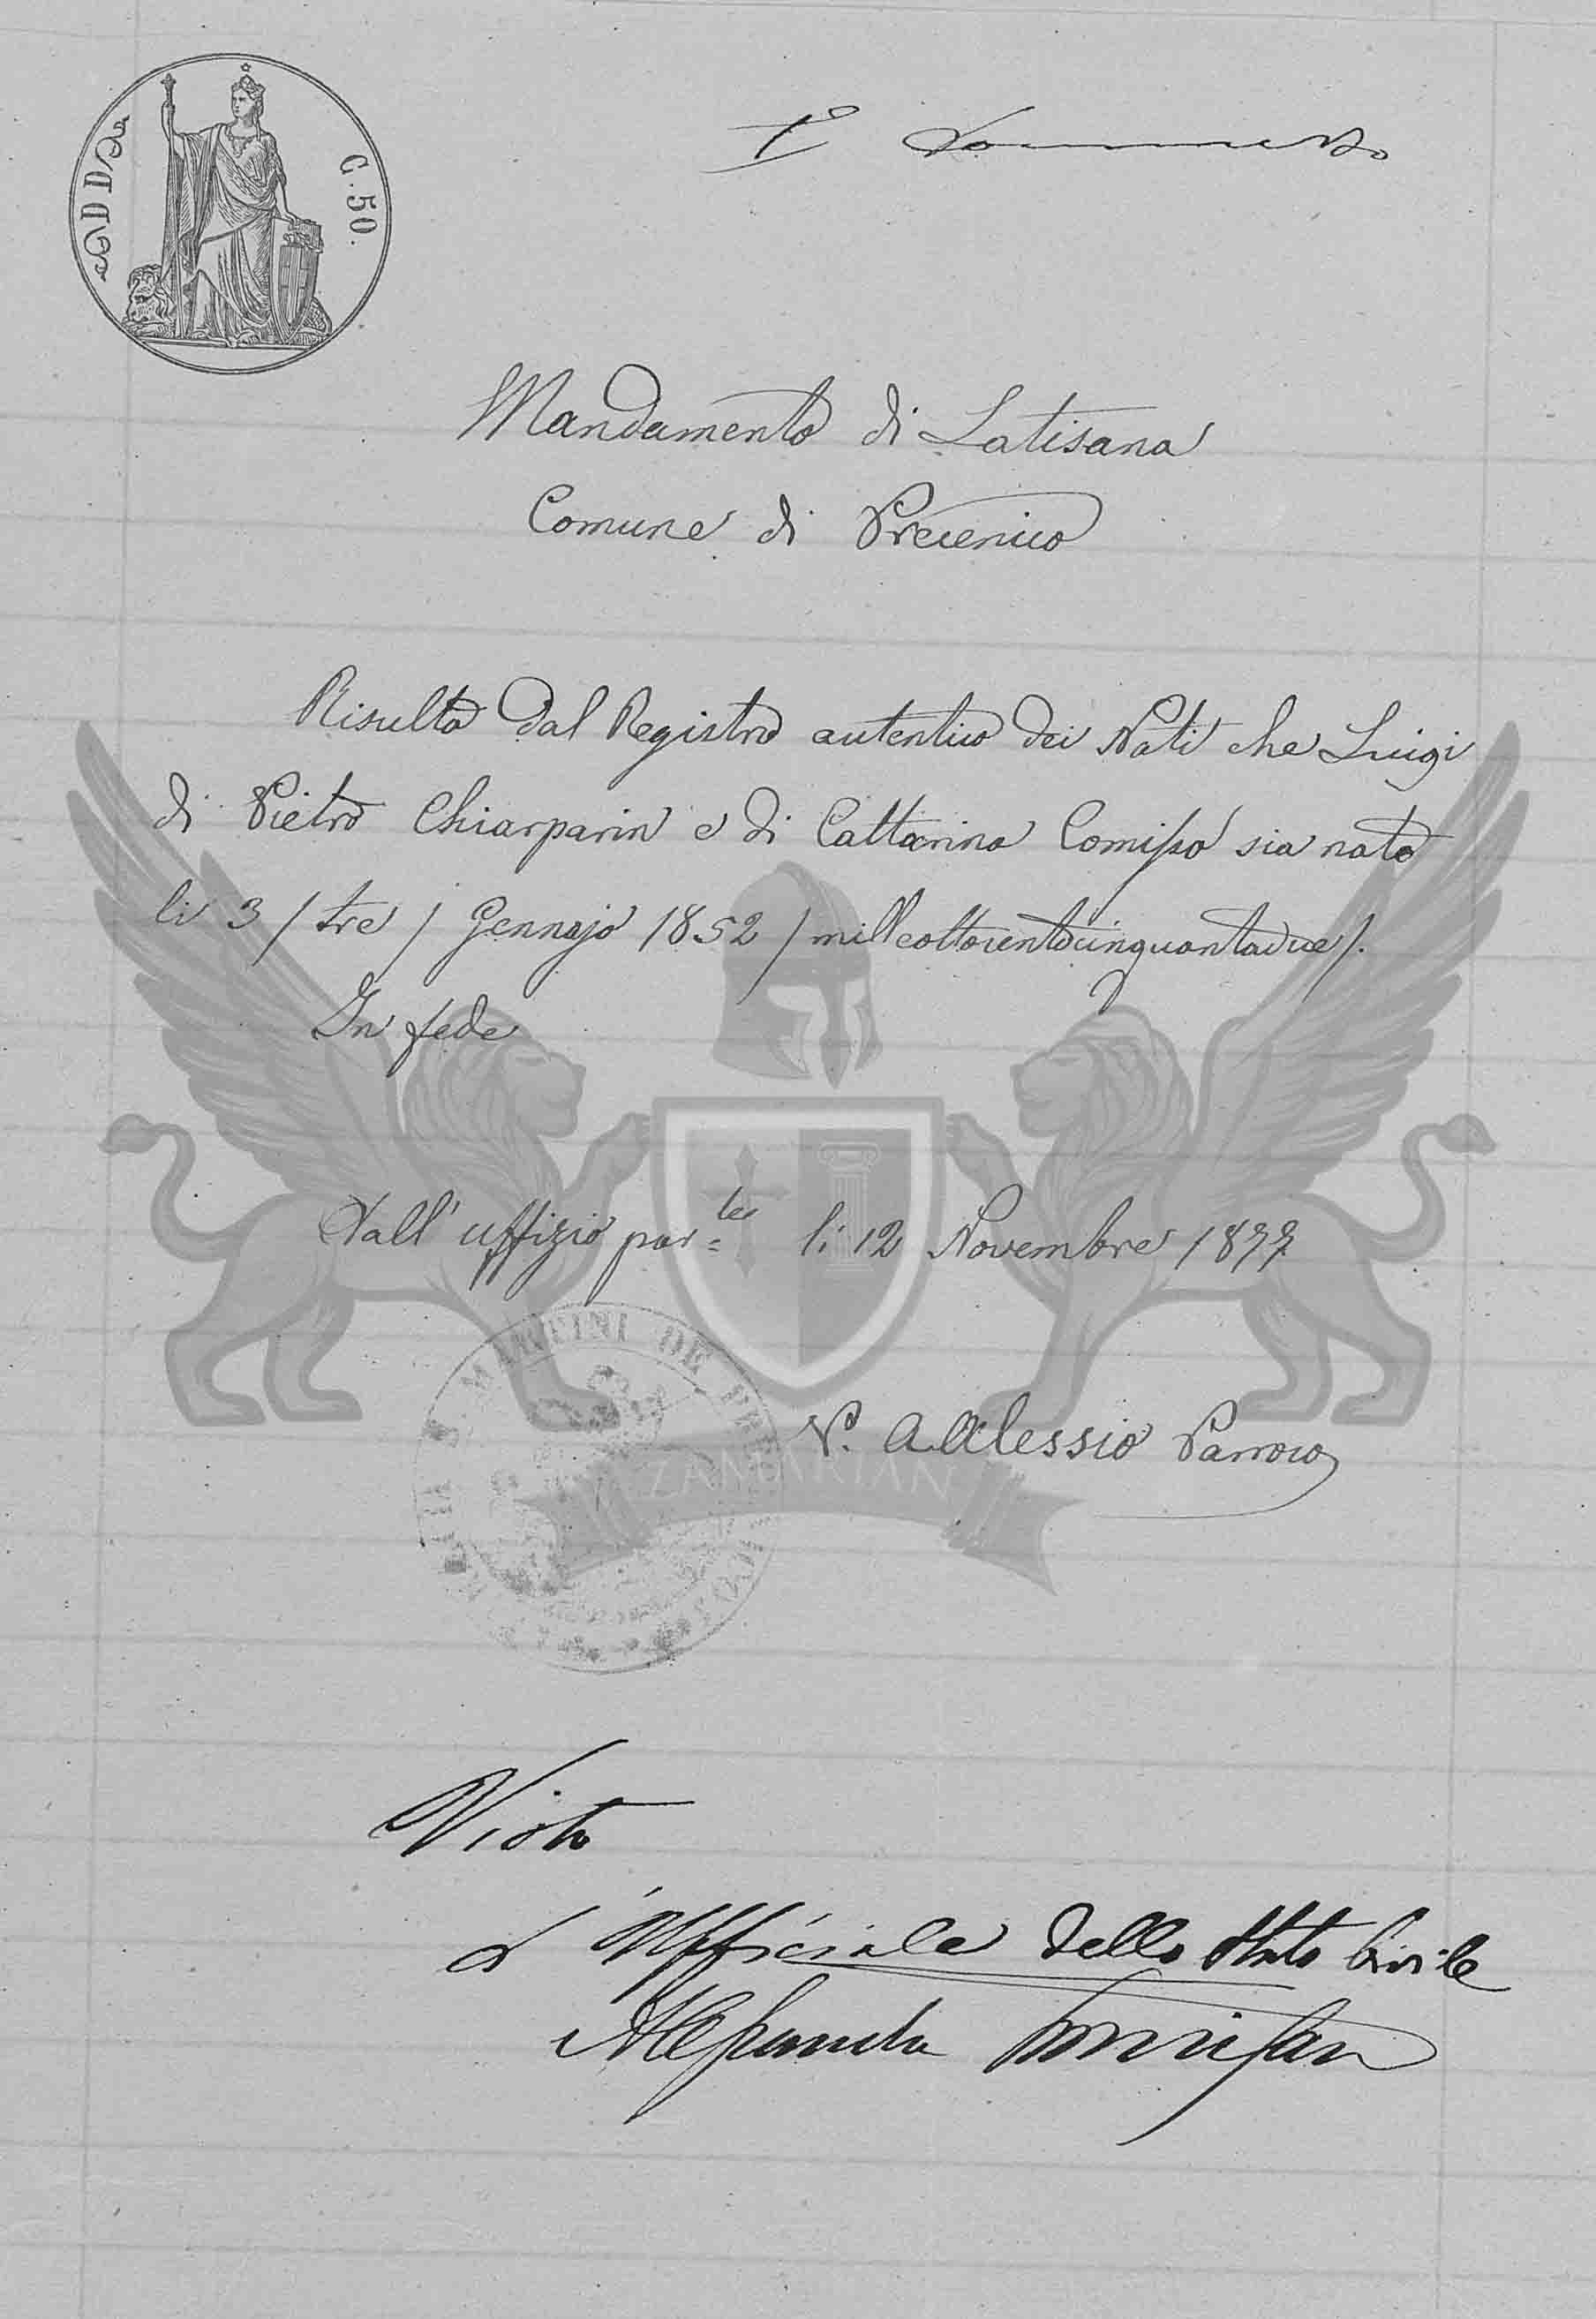 C. 50.
1°
Mandamento di Latisana
Comune di Precenico
Risulta dal Registro autentico dei Nati che Luigi
di Pietro Chiarparin e di Cattarina Comisso sia nato
li 3 / tre / Gennajo 1852 / milleottocentocinquantadue /.
In fede
Dall' uffizio par.le li 12 Novembre 1877
P. A. Alessio Parroco
MARTINI DE PRE
ZANGARIAN
Visto
L'Ufficiale dello Stato Civile